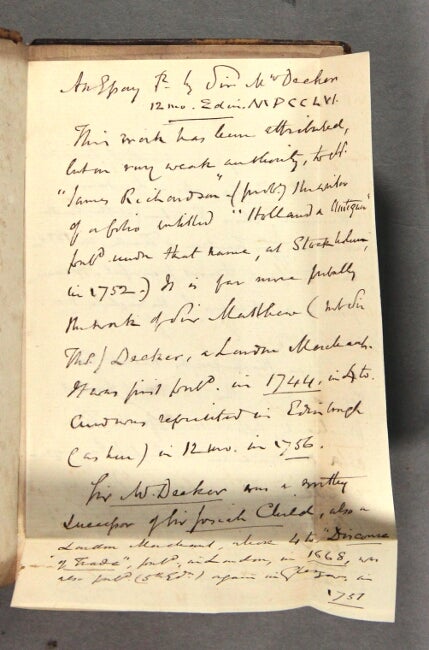 An Essay &c. by Sir Mw. Decker
12mo. Edin. MDCCLVI.
This work has been attributed,
but on very weak authority, to Mr.
"James Richardson" (probly the writer
of a folio entitled "Hollandia Antiqua"
pubd. under that name, at Stockholm,
in 1752.) It is far more probably
the work of Sir Matthew (not Sir
Thos.) Decker, a London Merchant.
It was first pubd. in 1744, in 4to.
and was reprinted in Edinburgh
(as here) in 12mo. in 1756.
Sir M. Decker was a worthy
successor of Sir Josiah Child, also a
London Merchant, whose 4to "Discourse
of Trade", pubd. in London, in 1668, was
also pubd. (5th Edn.) again in Glasgow, in
1751